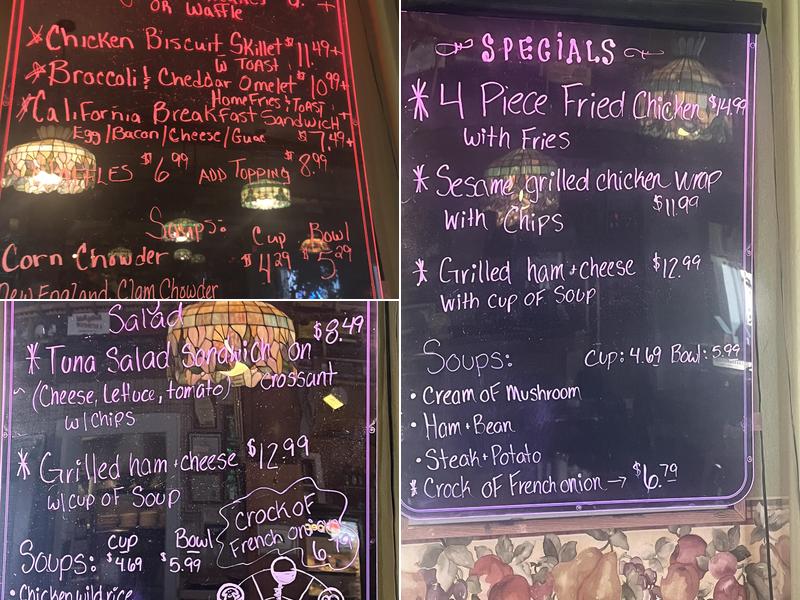 OR Waffle
Chicken Biscuit Skillet $11.49+
w/ TOAST
Broccoli & Cheddar Omelet $10.99+
HomeFries & TOAST
California Breakfast Sandwich
Egg/Bacon/Cheese/Guac $7.49+
$6.99 ADD TOPPING $8.99
Soups: Cup Bowl
Corn Chowder $4.29 $5.29
New England Clam Chowder
Salad
$8.49
Tuna Salad Sandwich on
Crossant
(Cheese, Lettuce, tomato)
w/chips
Grilled ham + cheese $12.99
w/cup of Soup
Crock of
French onion
Soups: Cup $4.69 Bowl $5.99
• Chicken wild rice
SPECIALS
4 Piece Fried Chicken $14.99
with Fries
Sesame grilled chicken wrap
$11.99
with Chips
Grilled ham + cheese $12.99
with cup of Soup
Soups: Cup: 4.69 Bowl: 5.99
• Cream of Mushroom
• Ham + Bean
• Steak + Potato
Crock of French onion → $6.79